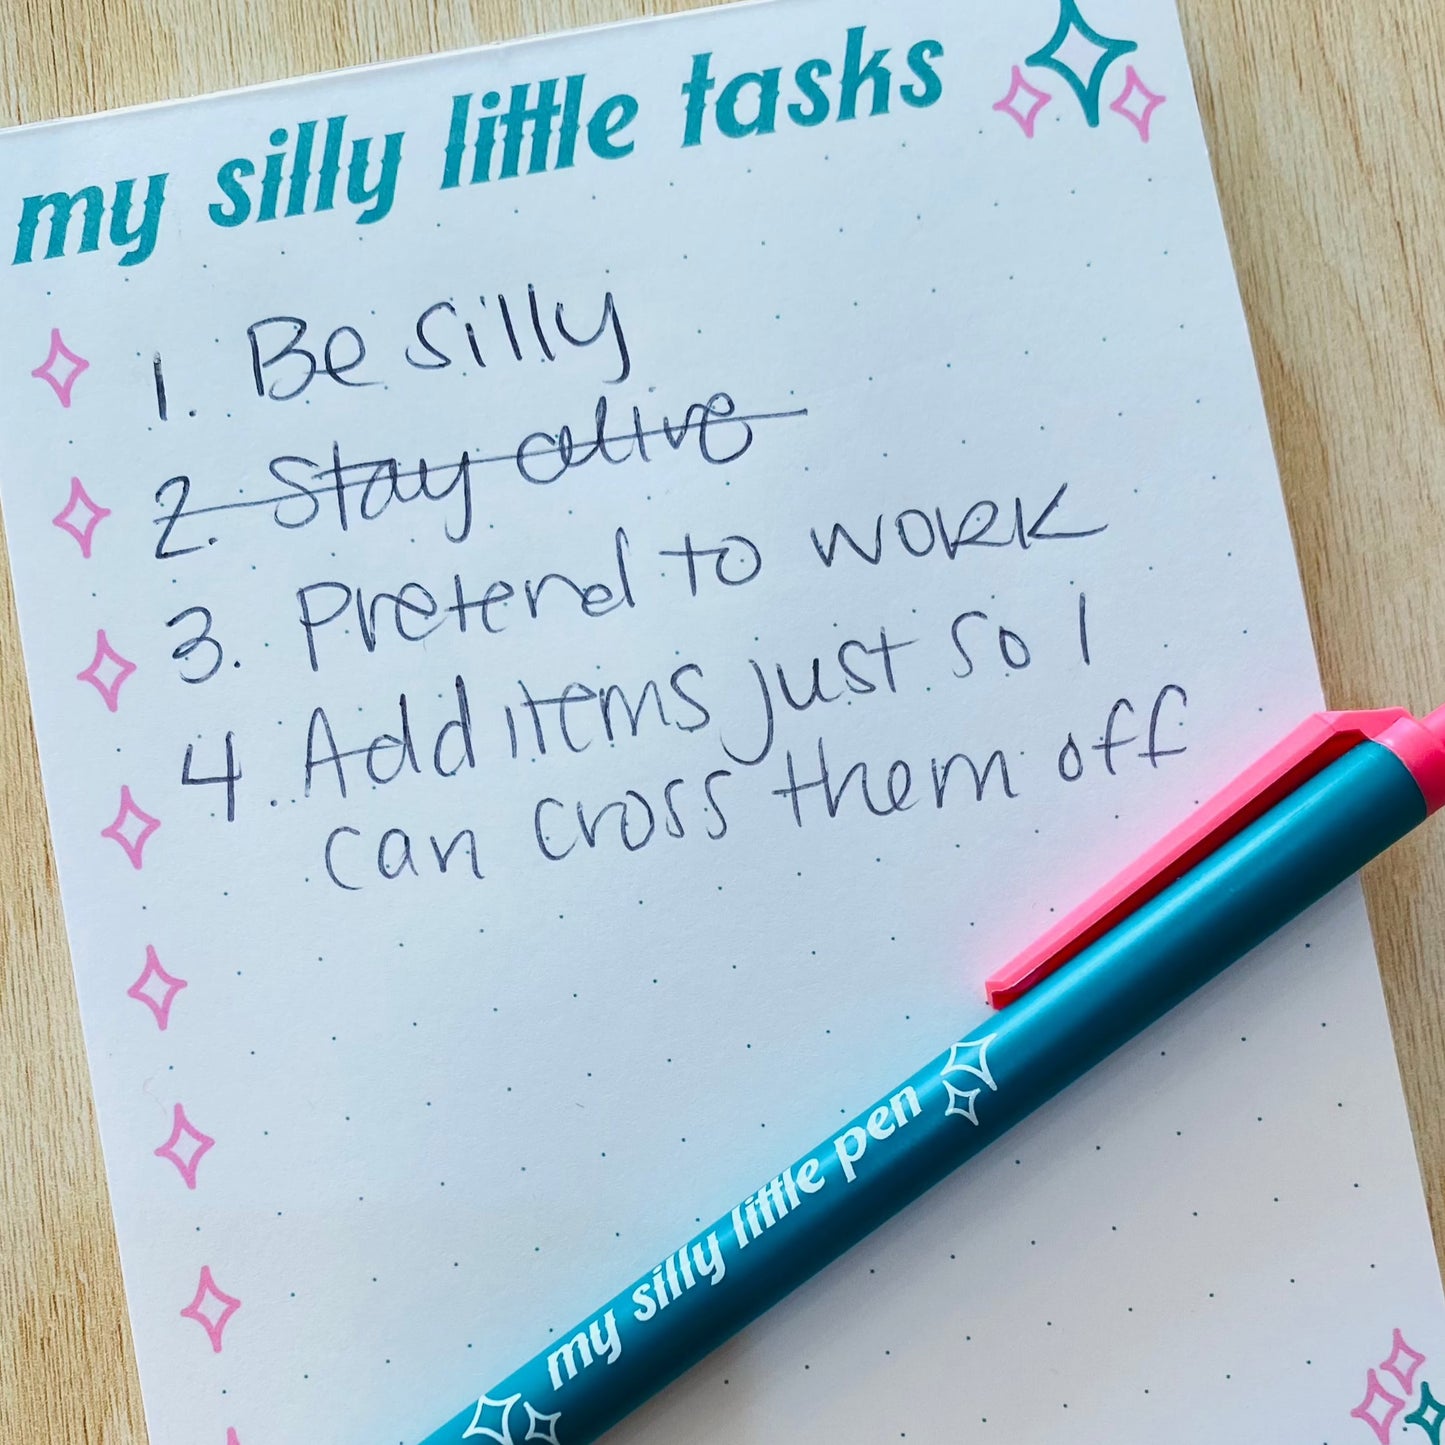 my silly little tasks
1. Be silly
2. Stay alive
3. Pretend to work
4. Add items just so I
can cross them off
my silly little pen